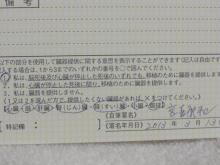 備 考
以下の部分を使用して臓器提供に関する意思を表示することができます(記入は自由です
1. 私は、脳死後及び心臓が停止した死後のいずれでも、移植の為に臓器を提供します。
2. 私は、心臓が停止した死後に限り、移植の為に臓器を提供します。
3. 私は、臓器を提供しません。
《1又は2を選んだ方で、提供したくない臓器があれば、×をつけてください。》
【心臓・肺・肝臓・腎臓・膵臓・小腸・眼球】
特記欄:
《自筆署名》
《署名年月日》 2013 年 3 月 13